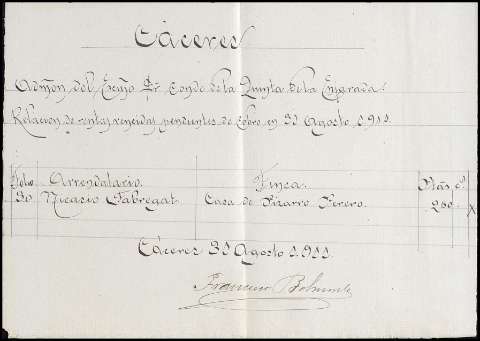 Cáceres
Admón del Excmo Sr Conde de la Quinta de la Enjarada.
Relación de rentas vencidas pendientes de cobro en 31 Agosto 1.911.
Folio Arrendatario. Finca. Ptas cs
30 Nicasio Fabregat. Casa de Pizarro Perero. 200
Cáceres 31 Agosto 1.911
Francisco Belmonte